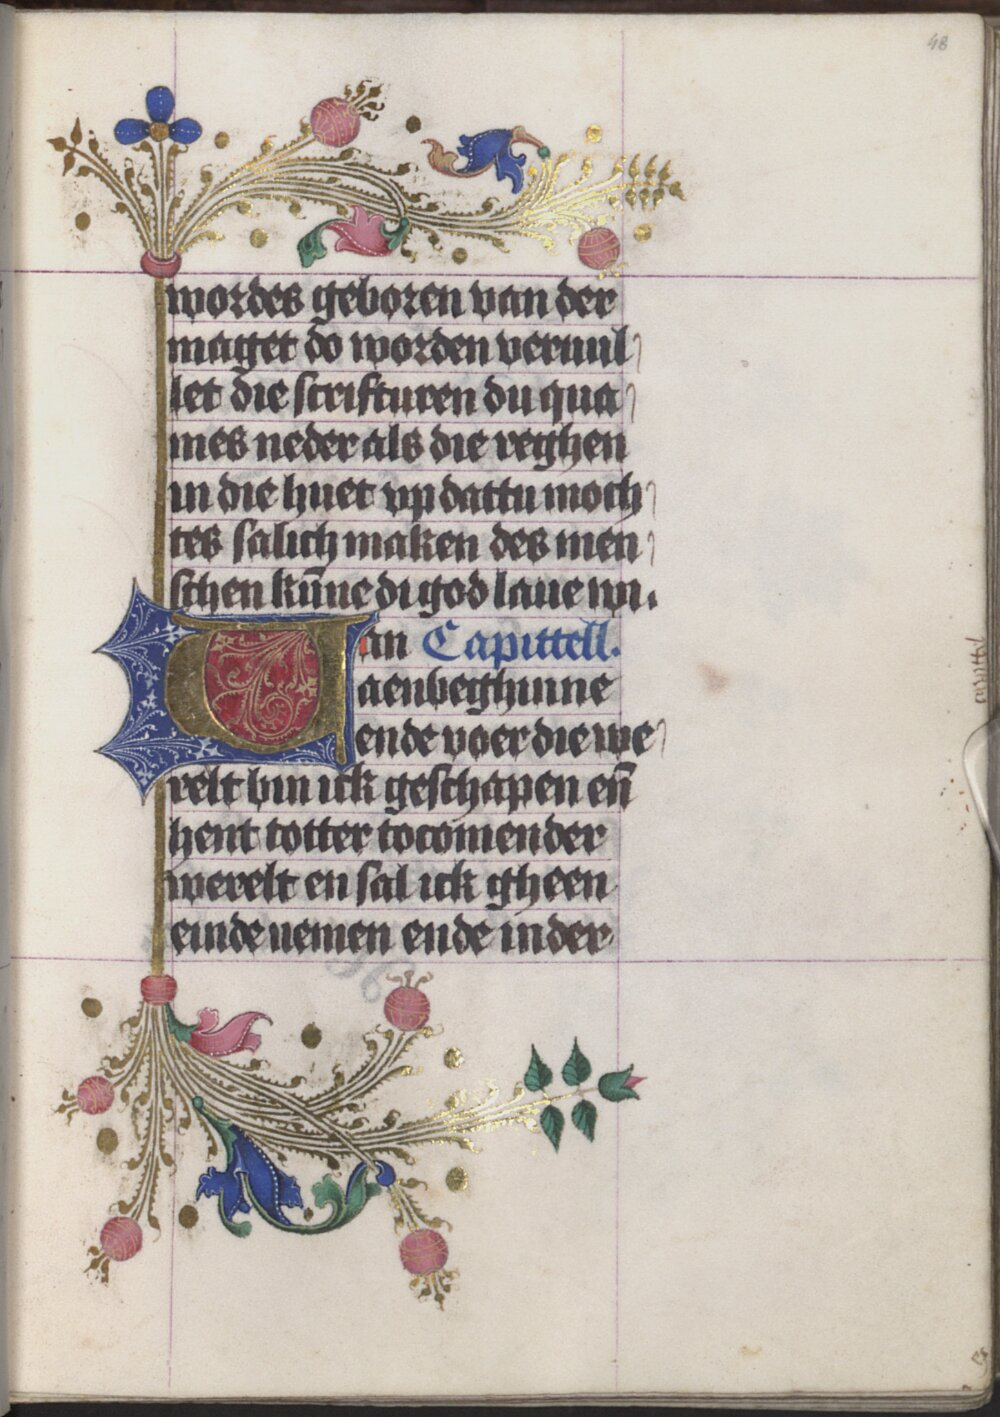 48
wordes geboren van der
maget do worden veruul
let die scrifturen du qua
mes neder als die reghen
in die huet up dattu moch
tes salich maken des men
schen kūne di god laue wi.
an Capittell.
Vaenbeghinne
ende voer die we
relt bin ick geschapen en̄
hent totter tocomender
werelt en sal ick gheen
einde nemen ende in der